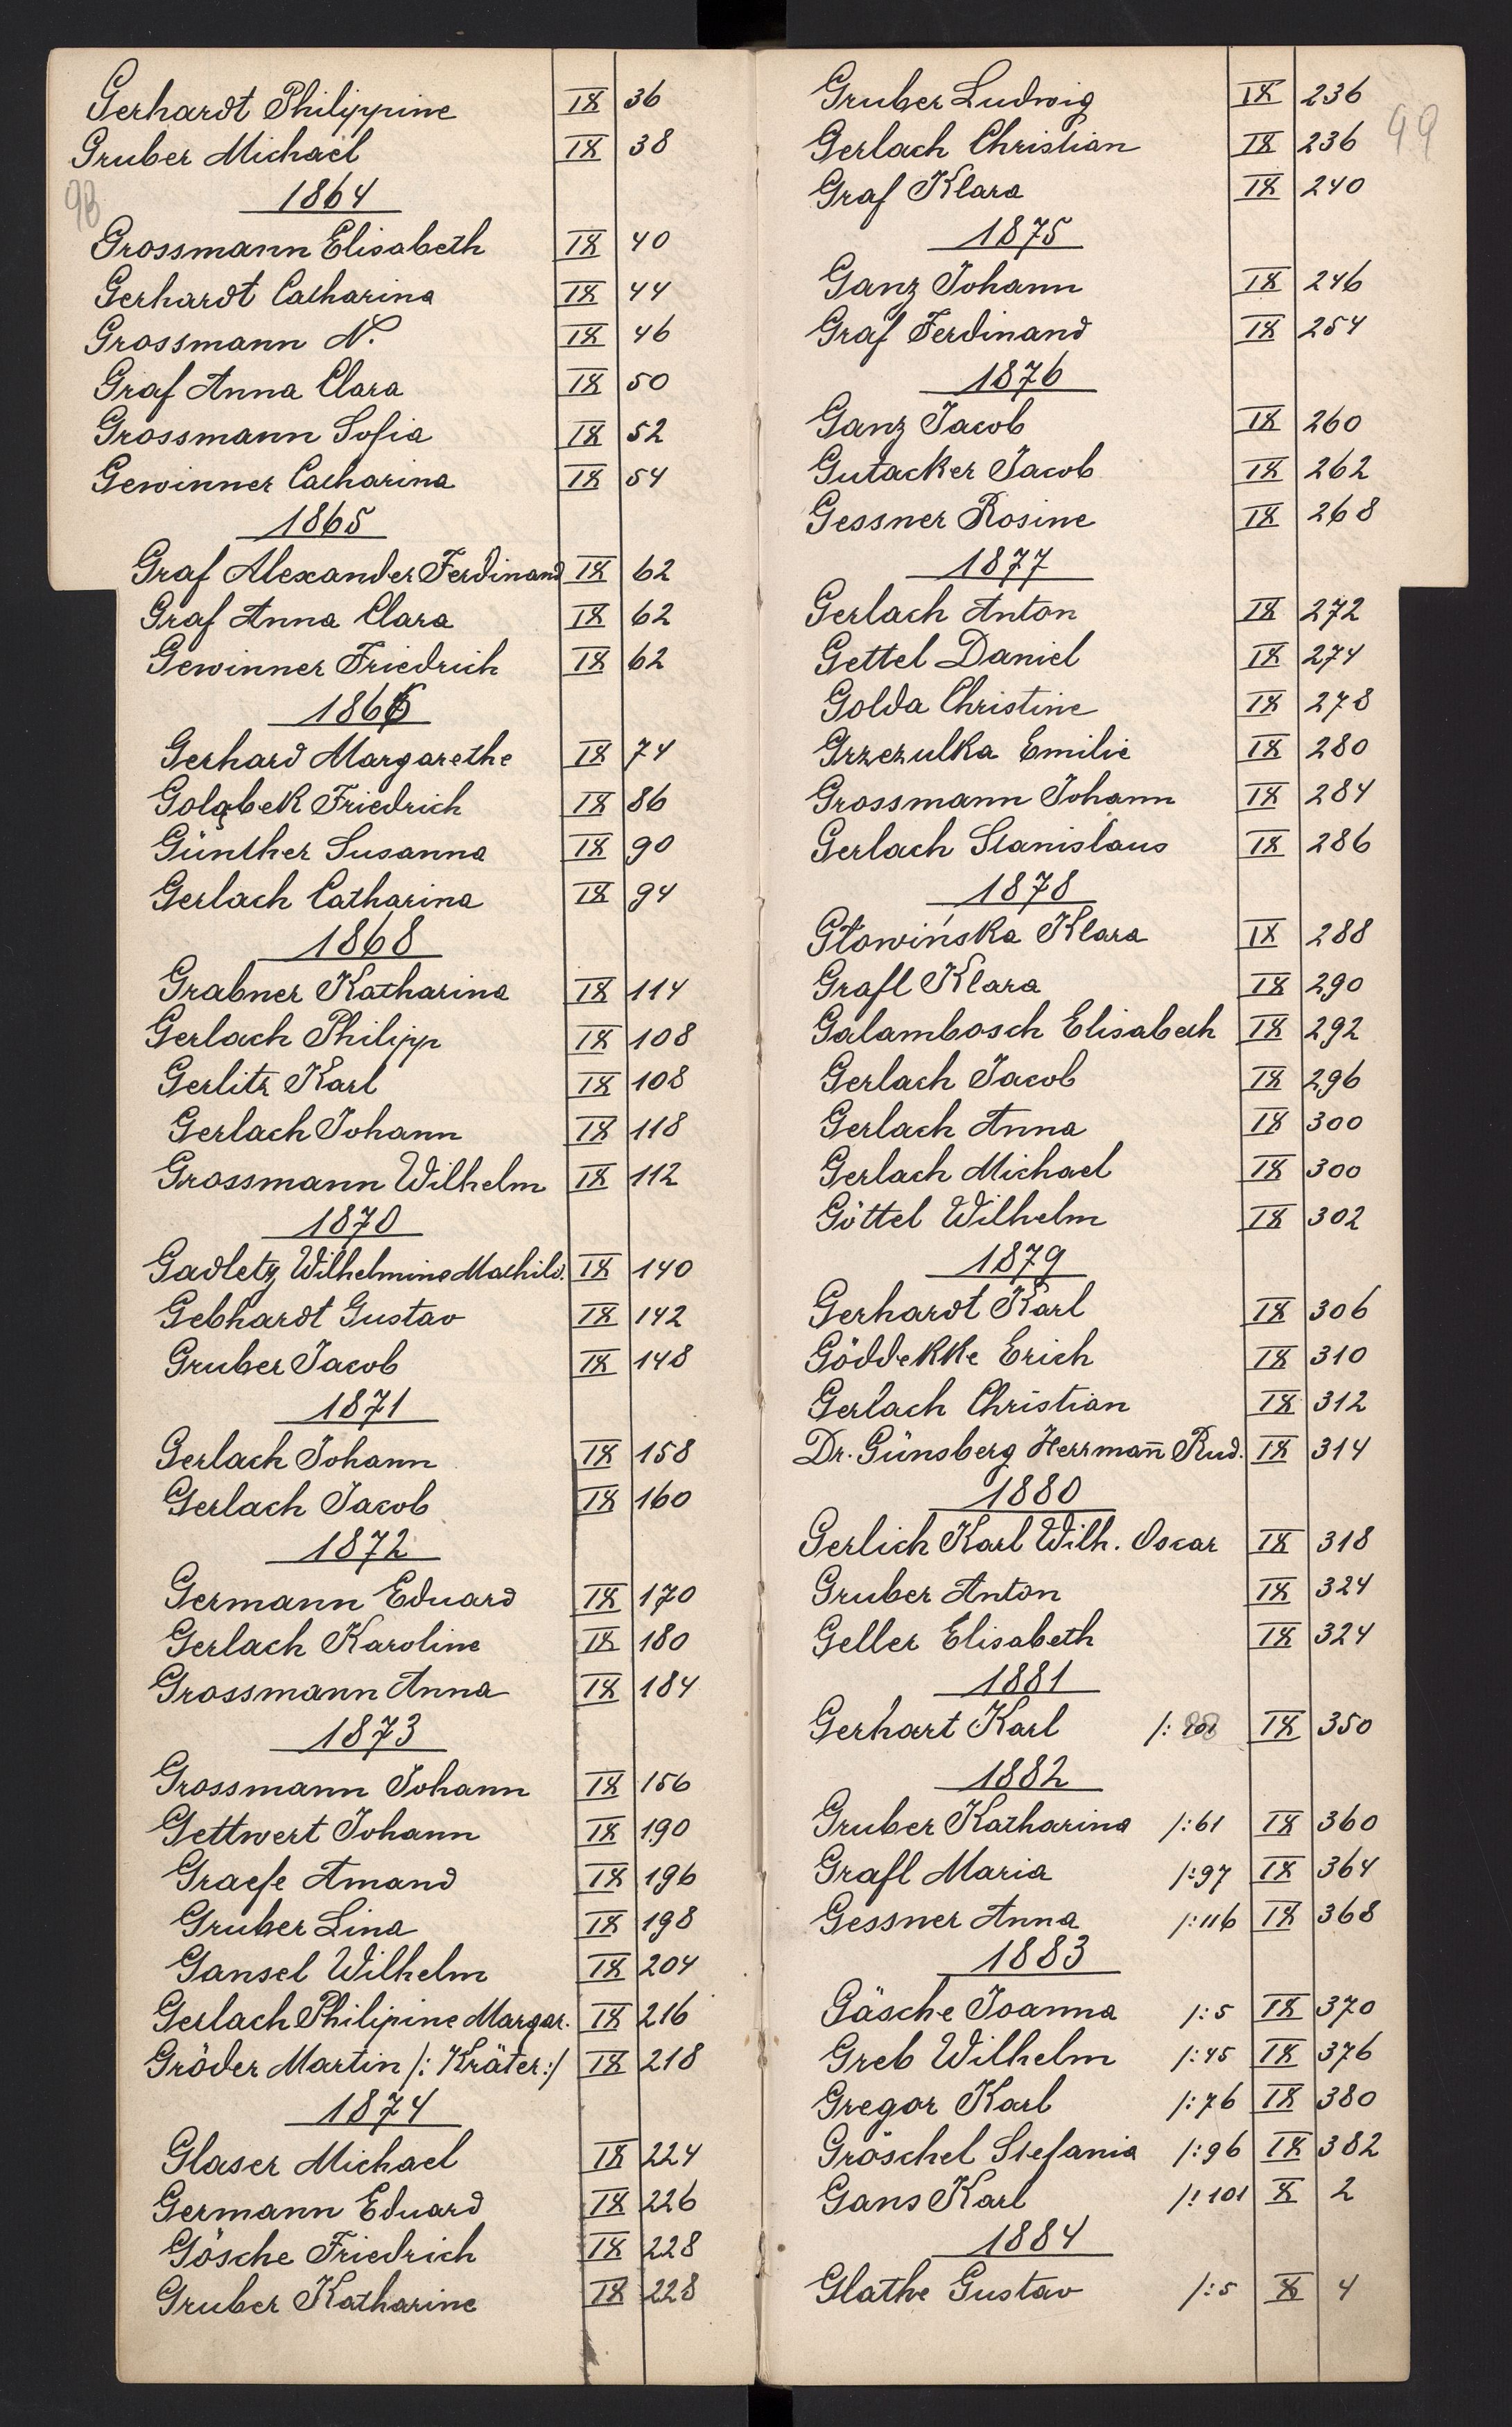 Gerhardt Philippine IX 36
Gruber Michael IX 38
98
1864
Grossmann Elisabeth IX 40
Gerhardt Catharina IX 44
Grossmann N. IX 46
Graf Anna Clara IX 50
Grossmann Sofia IX 52
Gewinner Catharina IX 54
1865
Graf Alexander Ferdinand IX 62
Graf Anna Clara IX 62
Gewinner Friedrich IX 62
1866
Gerhard Margarethe IX 74
Goląbek Friedrich IX 86
Günther Susanna IX 90
Gerlach Catharina IX 94
1868
Grabner Katharina IX 114
Gerlach Philipp IX 108
Gerlitz Karl IX 108
Gerlach Johann IX 118
Grossmann Wilhelm IX 112
1870
Gadletz Wilhelmine Mathild. IX 140
Gebhardt Gustav IX 142
Gruber Jacob IX 148
1871
Gerlach Johann IX 158
Gerlach Jacob IX 160
1872
Germann Eduard IX 170
Gerlach Karoline IX 180
Grossmann Anna IX 184
1873
Grossmann Johann IX 156
Gettwert Johann IX 190
Graefe Amand IX 196
Gruber Lina IX 198
Gansel Wilhelm IX 204
Gerlach Philipine Margar. IX 216
Gröder Martin /: Kräter :/ IX 218
1874
Glaser Michael IX 224
Germann Eduard IX 226
Gösche Friedrich IX 228
Gruber Katharine IX 228
Gruber Ludwig IX 236
99
Gerlach Christian IX 236
Graf Klara IX 240
1875
Ganz Johann IX 246
Graf Ferdinand IX 254
1876
Ganz Jacob IX 260
Gutacker Jacob IX 262
Gessner Rosine IX 268
1877
Gerlach Anton IX 272
Gettel Daniel IX 274
Golda Christine IX 278
Grzezulka Emilie IX 280
Grossmann Johann IX 284
Gerlach Stanislaus IX 286
1878
Głowińska Klara IX 288
Grafl Klara IX 290
Galambosch Elisabeth IX 292
Gerlach Jacob IX 296
Gerlach Anna IX 300
Gerlach Michael IX 300
Göttel Wilhelm IX 302
1879
Gerhardt Karl IX 306
Göddekke Erich IX 310
Gerlach Christian IX 312
Dr. Günsberg Herrmañ Rud. IX 314
1880
Gerlich Karl Wilh. Oscar IX 318
Gruber Anton IX 324
Geller Elisabeth IX 324
1881
Gerhart Karl /: IX 350
1882
Gruber Katharina /: 61 IX 360
Grafl Maria /: 97 IX 364
Gessner Anna /: 116 IX 368
1883
Gäsche Joanna /: 5 IX 370
Greb Wilhelm /: 45 IX 376
Gregor Karl /: 76 IX 380
Gröschel Stefania /: 96 IX 382
Gans Karl /: 101 X 2
1884
Glathe Gustav /: 5 X 4